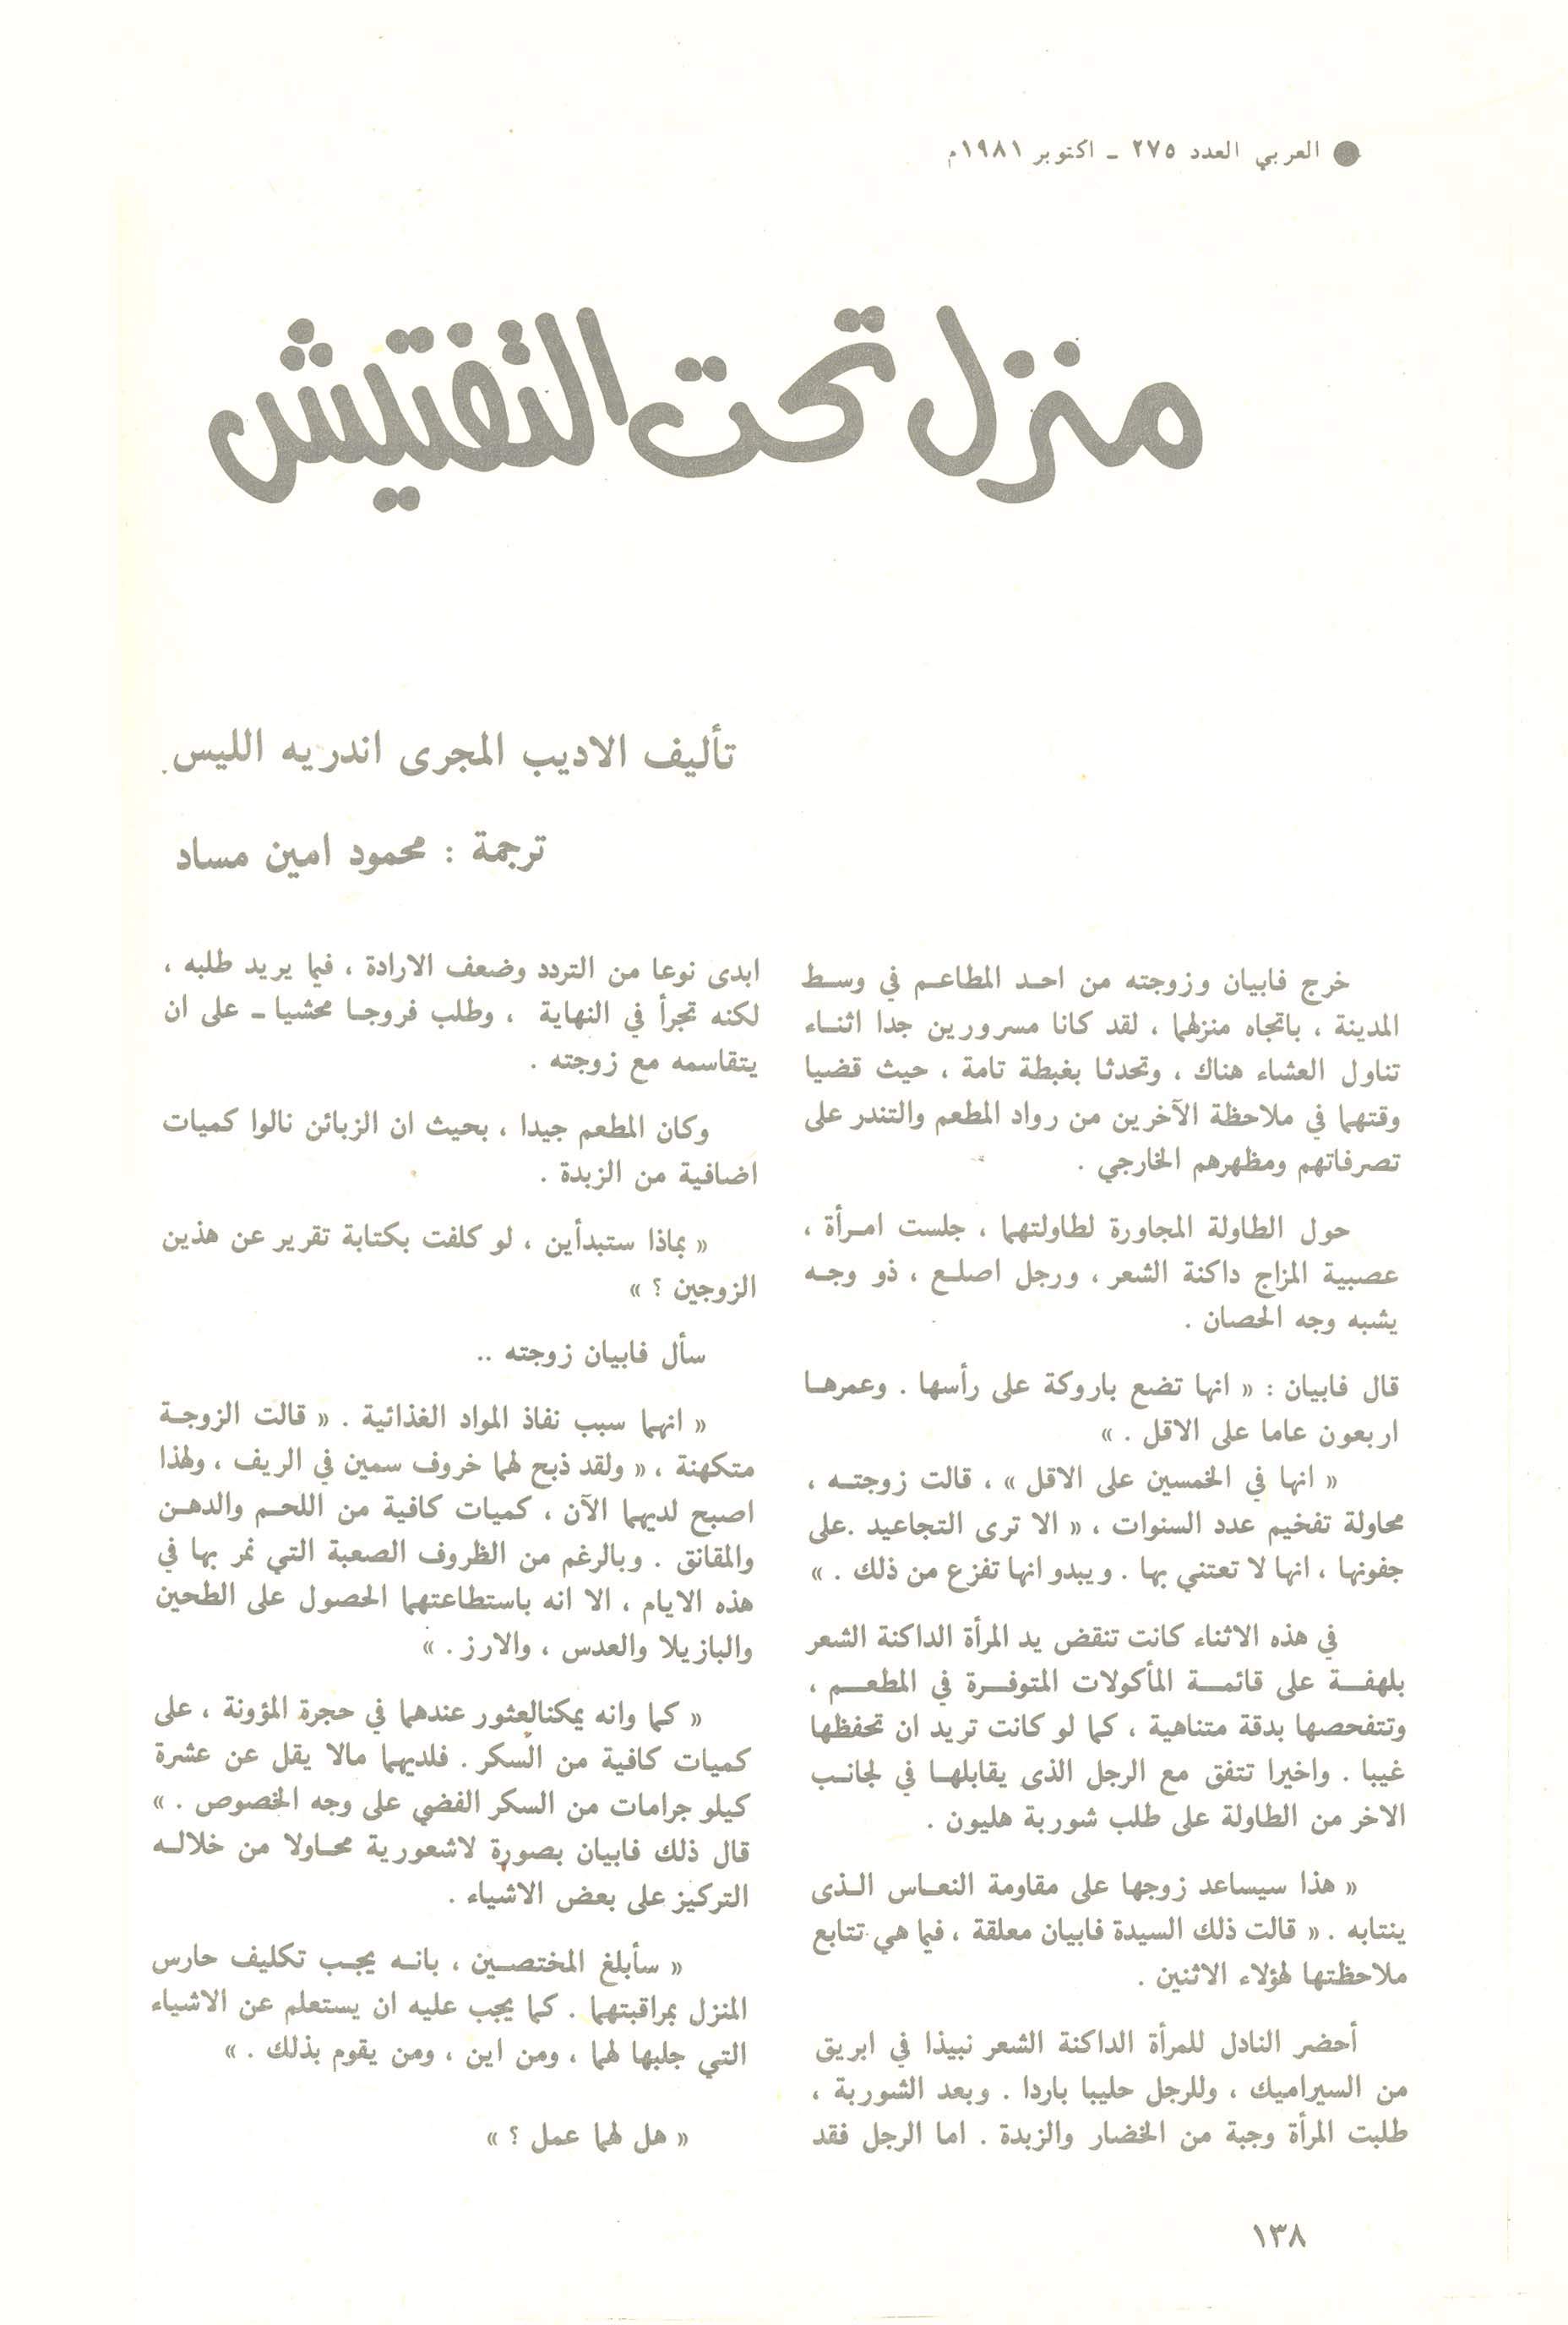 ● العربي العدد ٢٧٥ - اكتوبر ١٩٨١م
منزل تحت التفتيش
تأليف الاديب المجرى اندريه الليس
ترجمة : محمود امين مساد
خرج فابيان وزوجته من احد المطاعم في وسط
المدينة ، باتجاه منزلهما ، لقد كانا مسرورين جدا اثناء
تناول العشاء هناك ، وتحدثا بغبطة تامة ، حيث قضيا
وقتهما في ملاحظة الآخرين من رواد المطعم والتندر على
تصرفاتهم ومظهرهم الخارجي .
حول الطاولة المجاورة لطاولتهما ، جلست امرأة ،
عصبية المزاج داكنة الشعر ، ورجل اصلع ، ذو وجه
يشبه وجه الحصان .
قال فابيان : « انها تضع باروكة على رأسها . وعمرها
اربعون عاما على الاقل . »
« انها في الخمسين على الاقل » ، قالت زوجته ،
محاولة تفخيم عدد السنوات ، « الا ترى التجاعيد .على
جفونها ، انها لا تعتني بها . ويبدو انها تفزع من ذلك . »
في هذه الاثناء كانت تنقض يد المرأة الداكنة الشعر
بلهفة على قائمة المأكولات المتوفرة في المطعم ،
وتتفحصها بدقة متناهية ، كما لو كانت تريد ان تحفظها
غيبا . واخيرا تتفق مع الرجل الذى يقابلها في لجانب
الاخر من الطاولة على طلب شوربة هليون .
« هذا سيساعد زوجها على مقاومة النعاس الذى
ينتابه . « قالت ذلك السيدة فابيان معلقة ، فيما هي تتابع
ملاحظتها لهؤلاء الاثنين .
أحضر النادل للمرأة الداكنة الشعر نبيذا في ابريق
من السيراميك ، وللرجل حليبا باردا . وبعد الشوربة ،
طلبت المرأة وجبة من الخضار والزبدة . اما الرجل فقد
ابدى نوعا من التردد وضعف الارادة ، فيما يريد طلبه ،
لكنه تجرأ في النهاية ، وطلب فروجا محشيا - على ان
يتقاسمه مع زوجته .
وكان المطعم جيدا ، بحيث ان الزبائن نالوا كميات
اضافية من الزبدة .
« بماذا ستبدأين ، لو كلفت بكتابة تقرير عن هذين
الزوجين ؟ »
سأل فابيان زوجته ..
« انهما سبب نفاذ المواد الغذائية . « قالت الزوجة
متكهنة ، « ولقد ذبح لهما خروف سمين في الريف ، ولهذا
اصبح لديهما الآن ، كميات كافية من اللحم والدهن
والمقانق . وبالرغم من الظروف الصعبة التي نمر بها في
هذه الايام ، الا انه باستطاعتهما الحصول على الطحين
والبازيلا والعدس ، والارز . »
« كما وانه يمكنالعثور عندهما في حجرة المؤونة ، على
كميات كافية من السكر . فلديهما مالا يقل عن عشرة
كيلو جرامات من السكر الفضي على وجه الخصوص . »
قال ذلك فابيان بصورة لاشعورية محاولا من خلاله
التركيز على بعض الاشياء .
« سأبلغ المختصين ، بانه يجب تكليف حارس
المنزل بمراقبتهما . كما يجب عليه ان يستعلم عن الاشياء
التي جلبها لهما ، ومن اين ، ومن يقوم بذلك . »
« هل لهما عمل ؟ »
١٣٨